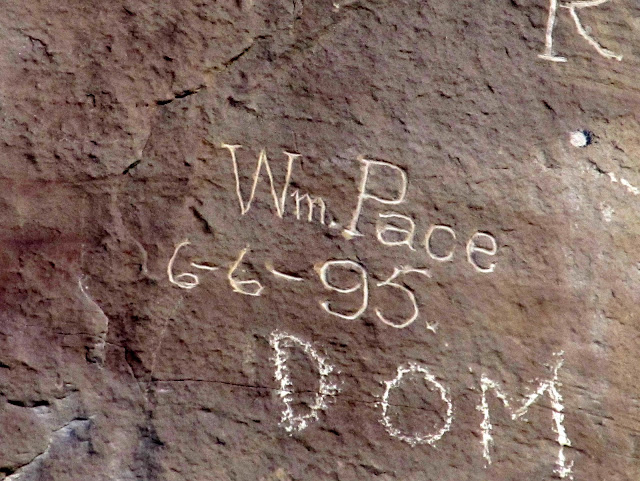 R
Wm. Pace
6-6-95.
DOM